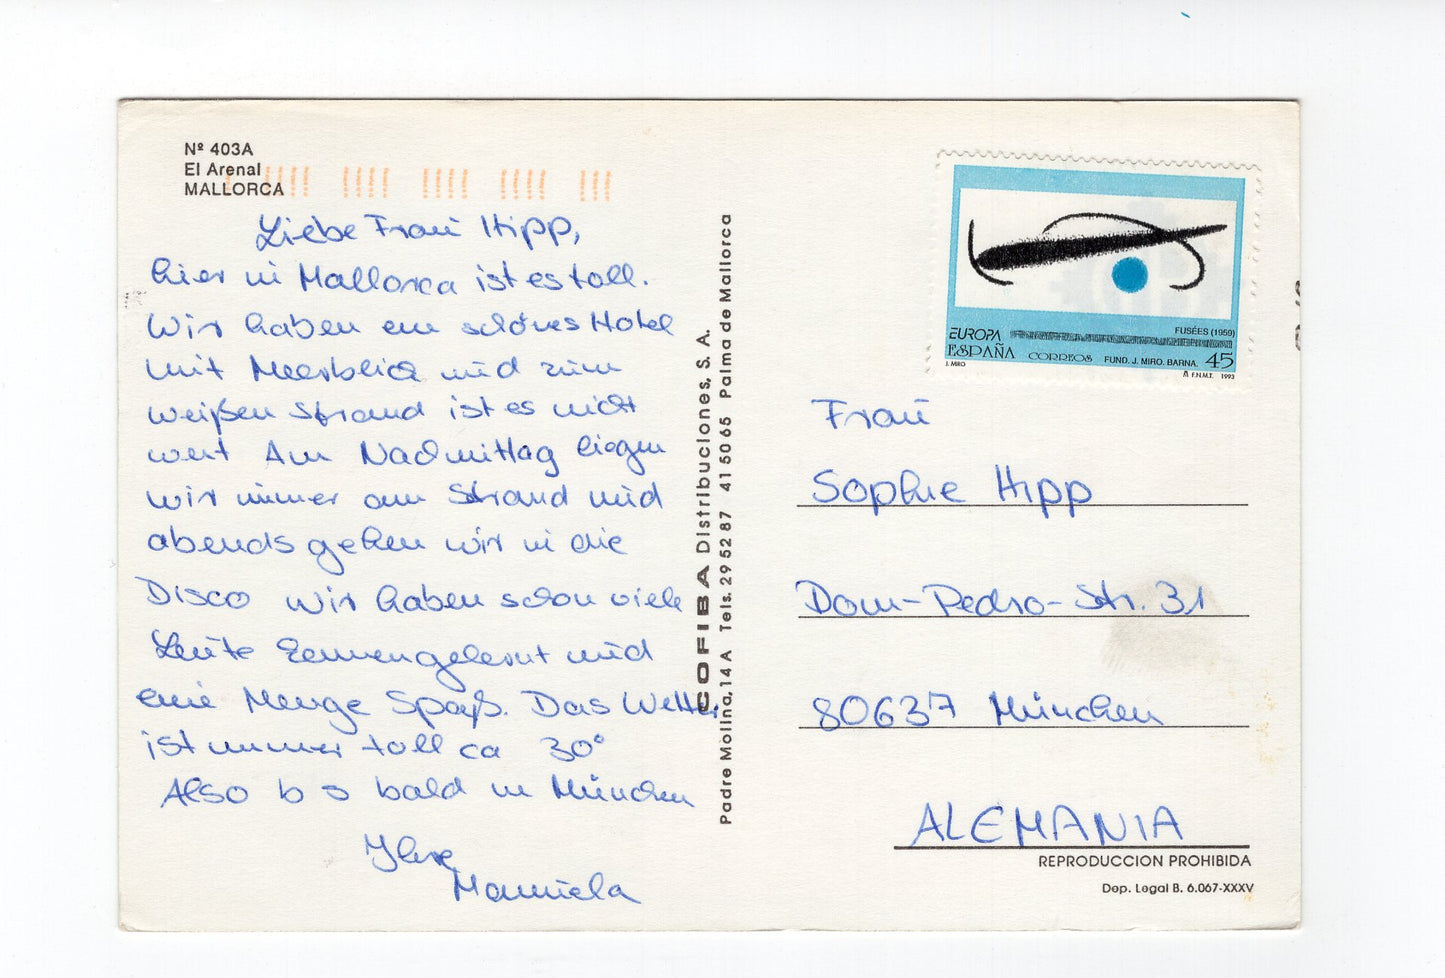 Nº 403A
El Arenal
MALLORCA
Liebe Frau Hipp,
hier in Mallorca ist es toll.
Wir haben ein schönes Hotel
mit Meerblick und zum
weißen Strand ist es nicht
weit Am Nachmittag liegen
wir immer am Strand und
abends gehen wir in die
Disco wir haben schon viele
Leute kennengelernt und
eine Menge Spaß. Das Wetter
ist immer toll ca 30°
Also bis bald in München
Ihre
Manuela
COFIBA Distribuciones, S. A.
Padre Molina, 14 A Tels. 29 52 87 41 50 65 Palma de Mallorca
EUROPA
FUSÉES (1959)
ESPAÑA CORREOS FUND. J. MIRO. BARNA. 45
J. MIRO
F.N.M.T. 1993
Frau
Sophie Hipp
Dom-Pedro-Str. 31
80637 München
ALEMANIA
REPRODUCCION PROHIBIDA
Dep. Legal B. 6.067-XXXV